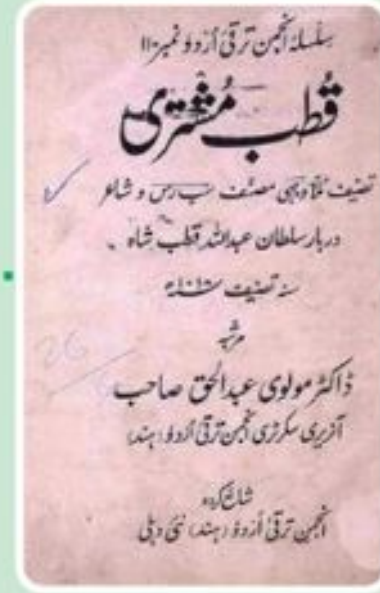 سلسلۂ انجمن ترقیٔ اُردو نمبر ۱۱۰
قُطب مُشتری
تصنیف مُلّا وجہی مصنّف سب رس و شاعر
دربار سلطان عبداللہ قطب شاہ
سنہ تصنیف ۱۰۱۸ھ
مرتّبہ
ڈاکٹر مولوی عبدالحق صاحب
آنریری سکرٹری انجمن ترقیٔ اُردو (ہند)
شائع کردہ
انجمن ترقیٔ اُردو (ہند) نئی دہلی
26